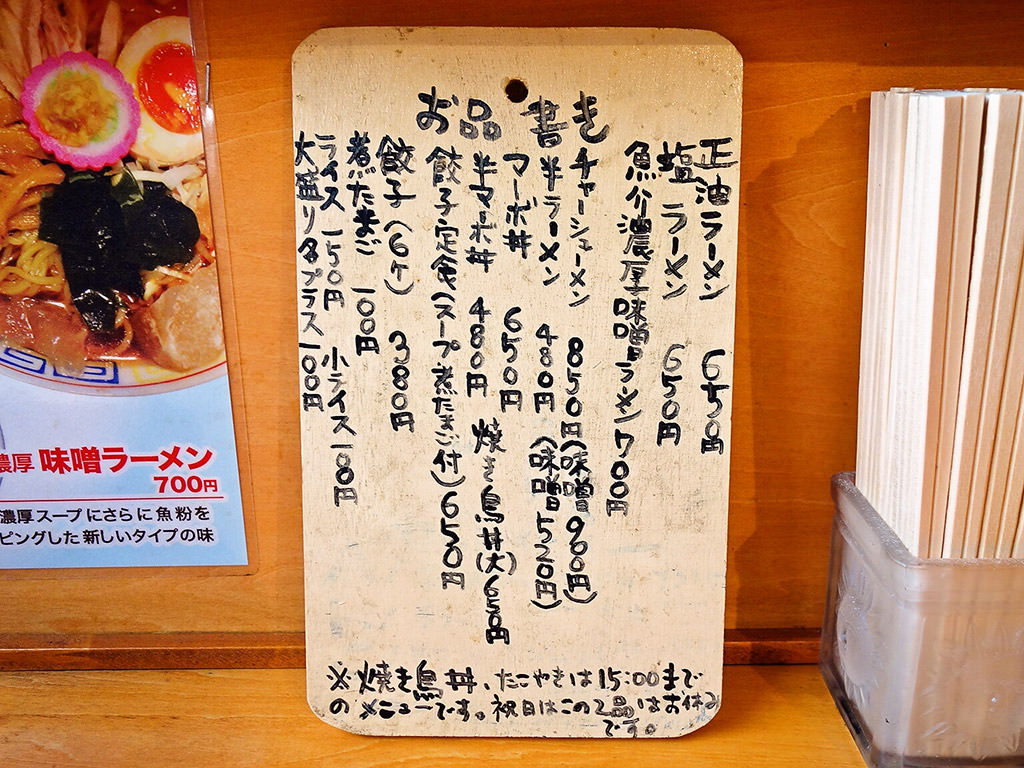 お品書き
正油ラーメン 650円
塩ラーメン 650円
魚介濃厚味噌ラーメン 700円
チャーシューメン 850円(味噌 900円)
半ラーメン 480円(味噌 520円)
マーボ丼 650円
半マーボ丼 480円 焼き鳥丼(大)650円
餃子定食(スープ煮たまご付)650円
餃子(6ケ) 380円
煮たまご 100円
ライス 150円 小ライス 100円
大盛り各プラス100円
※焼き鳥丼、たこやきは15:00まで
のメニューです。祝日はこの2品はお休み
です。
濃厚 味噌ラーメン
700円
濃厚スープにさらに魚粉を
ピングした新しいタイプの味